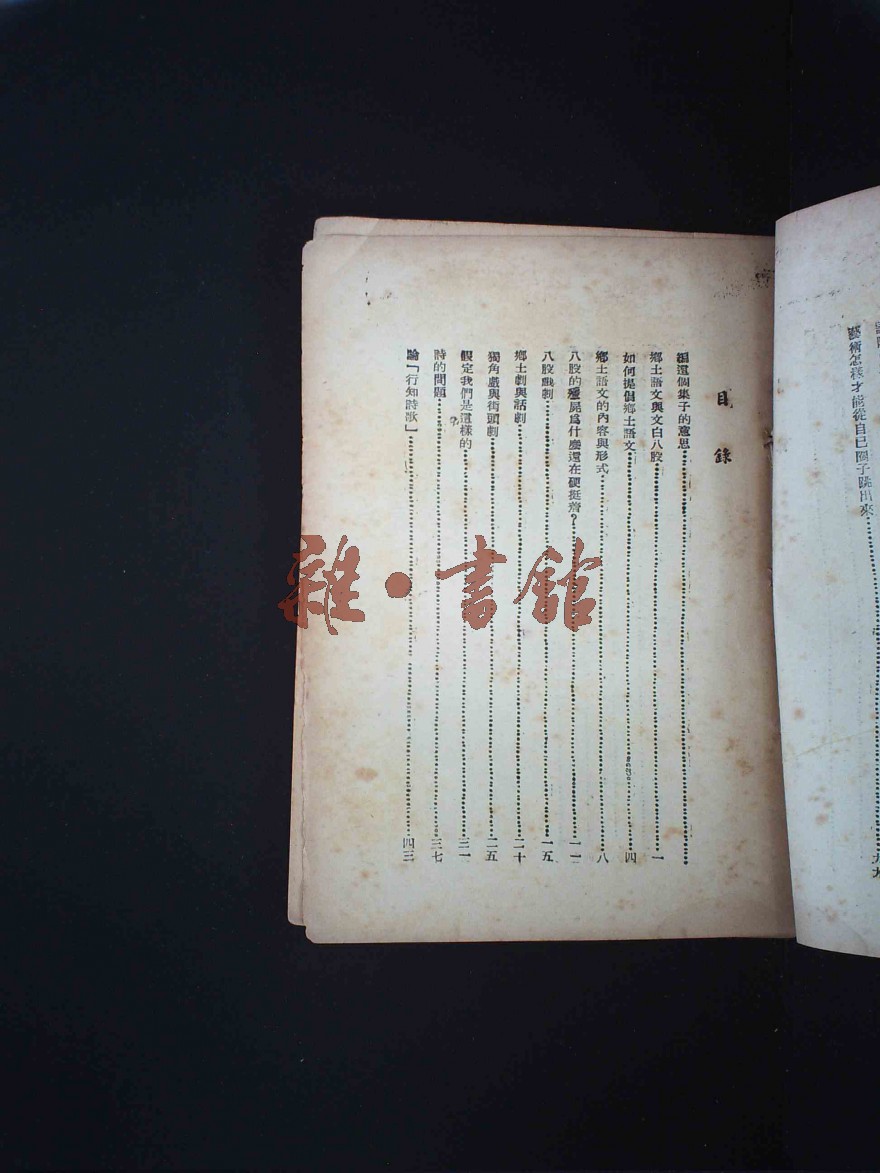 目錄
編這個集子的意思
鄉土語文與文白八股 一
如何提倡鄉土語文 四
鄉土語文的內容與形式 八
八股的殭屍爲什麽還在硬挺着? 一一
八股戲劇 一五
鄉土劇與話劇 二十
獨角戲與街頭劇 二五
假定我們是這樣的 三一
詩的問題 三七
論「行知詩歌」 四三
藝術怎樣才能從自己圈子跳出來
雜·書館